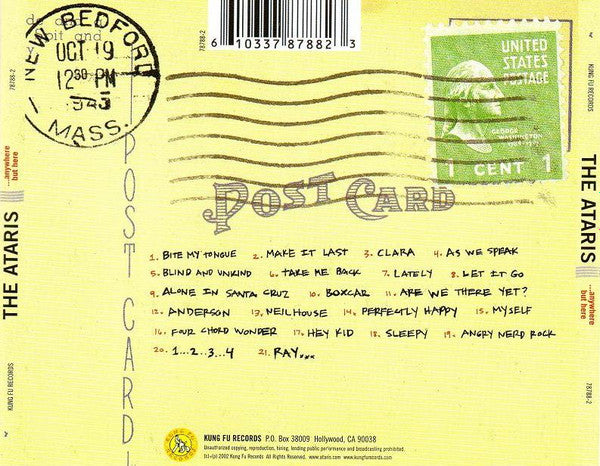 NEW BEDFORD
OCT 19
12 30 PM
1943
MASS.
6 10337 87882 3
UNITED
STATES
POSTAGE
GEORGE
WASHINGTON
1 CENT 1
POST CARD
POST CARD
1. BITE MY TONGUE 2. MAKE IT LAST 3. CLARA 4. AS WE SPEAK
5. BLIND AND UNKIND 6. TAKE ME BACK 7. LATELY 8. LET IT GO
9. ALONE IN SANTA CRUZ 10. BOXCAR 11. ARE WE THERE YET?
12. ANDERSON 13. NEILHOUSE 14. PERFECTLY HAPPY 15. MYSELF
16. FOUR CHORD WONDER 17. HEY KID 18. SLEEPY 19. ANGRY NERD ROCK
20. 1...2...3...4 21. RAY...
KUNG FU RECORDS P.O. Box 38009 Hollywood, CA 90038
Unauthorized copying, reproduction, hiring, lending public performance and broadcasting prohibited.
(c)+(p) 2002 Kung Fu Records All Rights Reserved. www.ataris.com www.kungfurecords.com
THE ATARIS
...anywhere
but here
78788-2
KUNG FU RECORDS
THE ATARIS
...anywhere
but here
78788-2
KUNG FU RECORDS